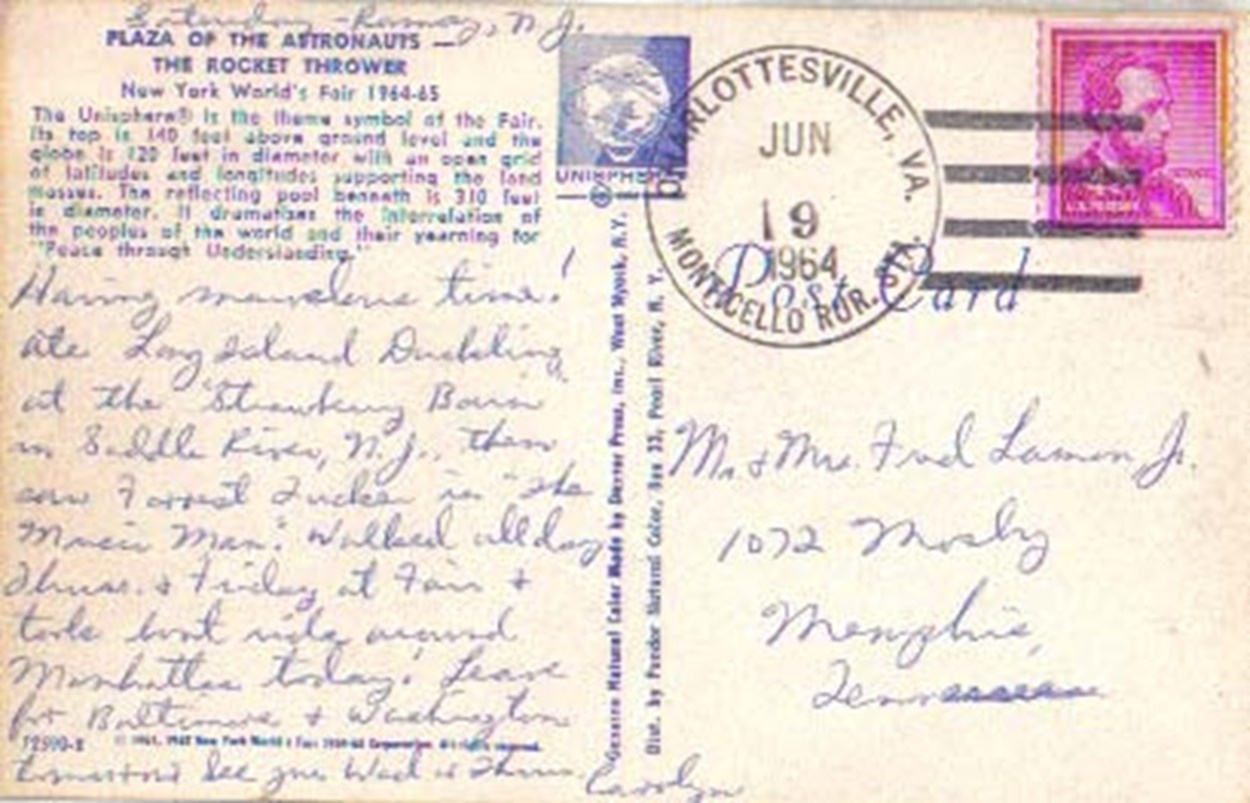 Saturday - Ramsey, N.J.
PLAZA OF THE ASTRONAUTS —
THE ROCKET THROWER
New York World's Fair 1964-65
The Unisphere® is the theme symbol of the Fair.
Its top is 140 feet above ground level and the
globe is 120 feet in diameter with an open grid
of latitudes and longitudes supporting the land
masses. The reflecting pool beneath is 310 feet
in diameter. It dramatizes the interrelation of
the peoples of the world and their yearning for
"Peace through Understanding."
Having marvelous time!
ate Long Island Duckling
at the "Strawberry Barn"
in Saddle River, N.J., then
saw Forrest Tucker in "The
Music Man." Walked all day
Thurs. & Friday at Fair &
took boat ride around
Manhattan today! Leave
for Baltimore & Washington
12590-B © 1961, 1962 New York World's Fair 1964-65 Corporation. All rights reserved.
tomorrow See you Wed or Thurs.
Carolyn
UNISPHERE
®
Genuine Natural Color Made by Dexter Press, Inc., West Nyack, N.Y.
Dist. by Pendor Natural Color, Box 33, Pearl River, N. Y.
CHARLOTTESVILLE, VA.
JUN
19
1964
MONTICELLO RUR. STA.
Post Card
Mr. & Mrs. Fred Lamon Jr.
1072 Mosby
Memphis,
Tennessee